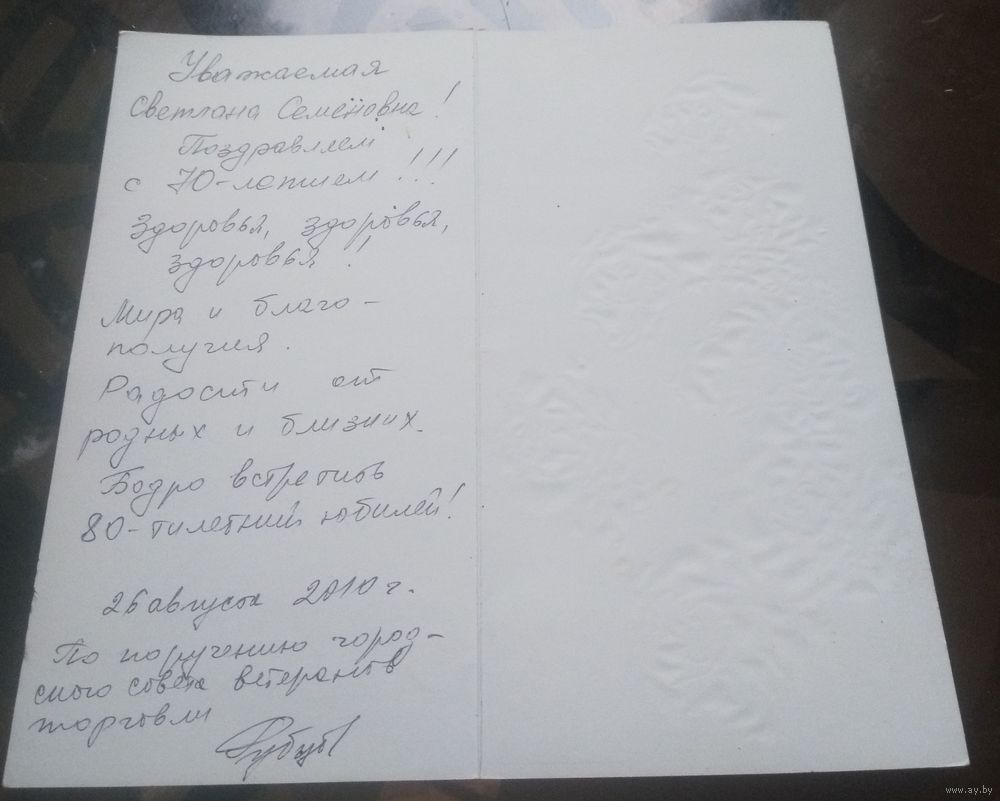 Уважаемая
Светлана Семёновна!
Поздравляем
с 70-летием!!!
Здоровья, здоровья,
здоровья!!
Мира и благо-
получия.
Радости от
родных и близких.
Бодро встретить
80-тилетний юбилей!
26 августа 2010 г.
По поручению город-
ского совета ветеранов
торговли
www.ay.by